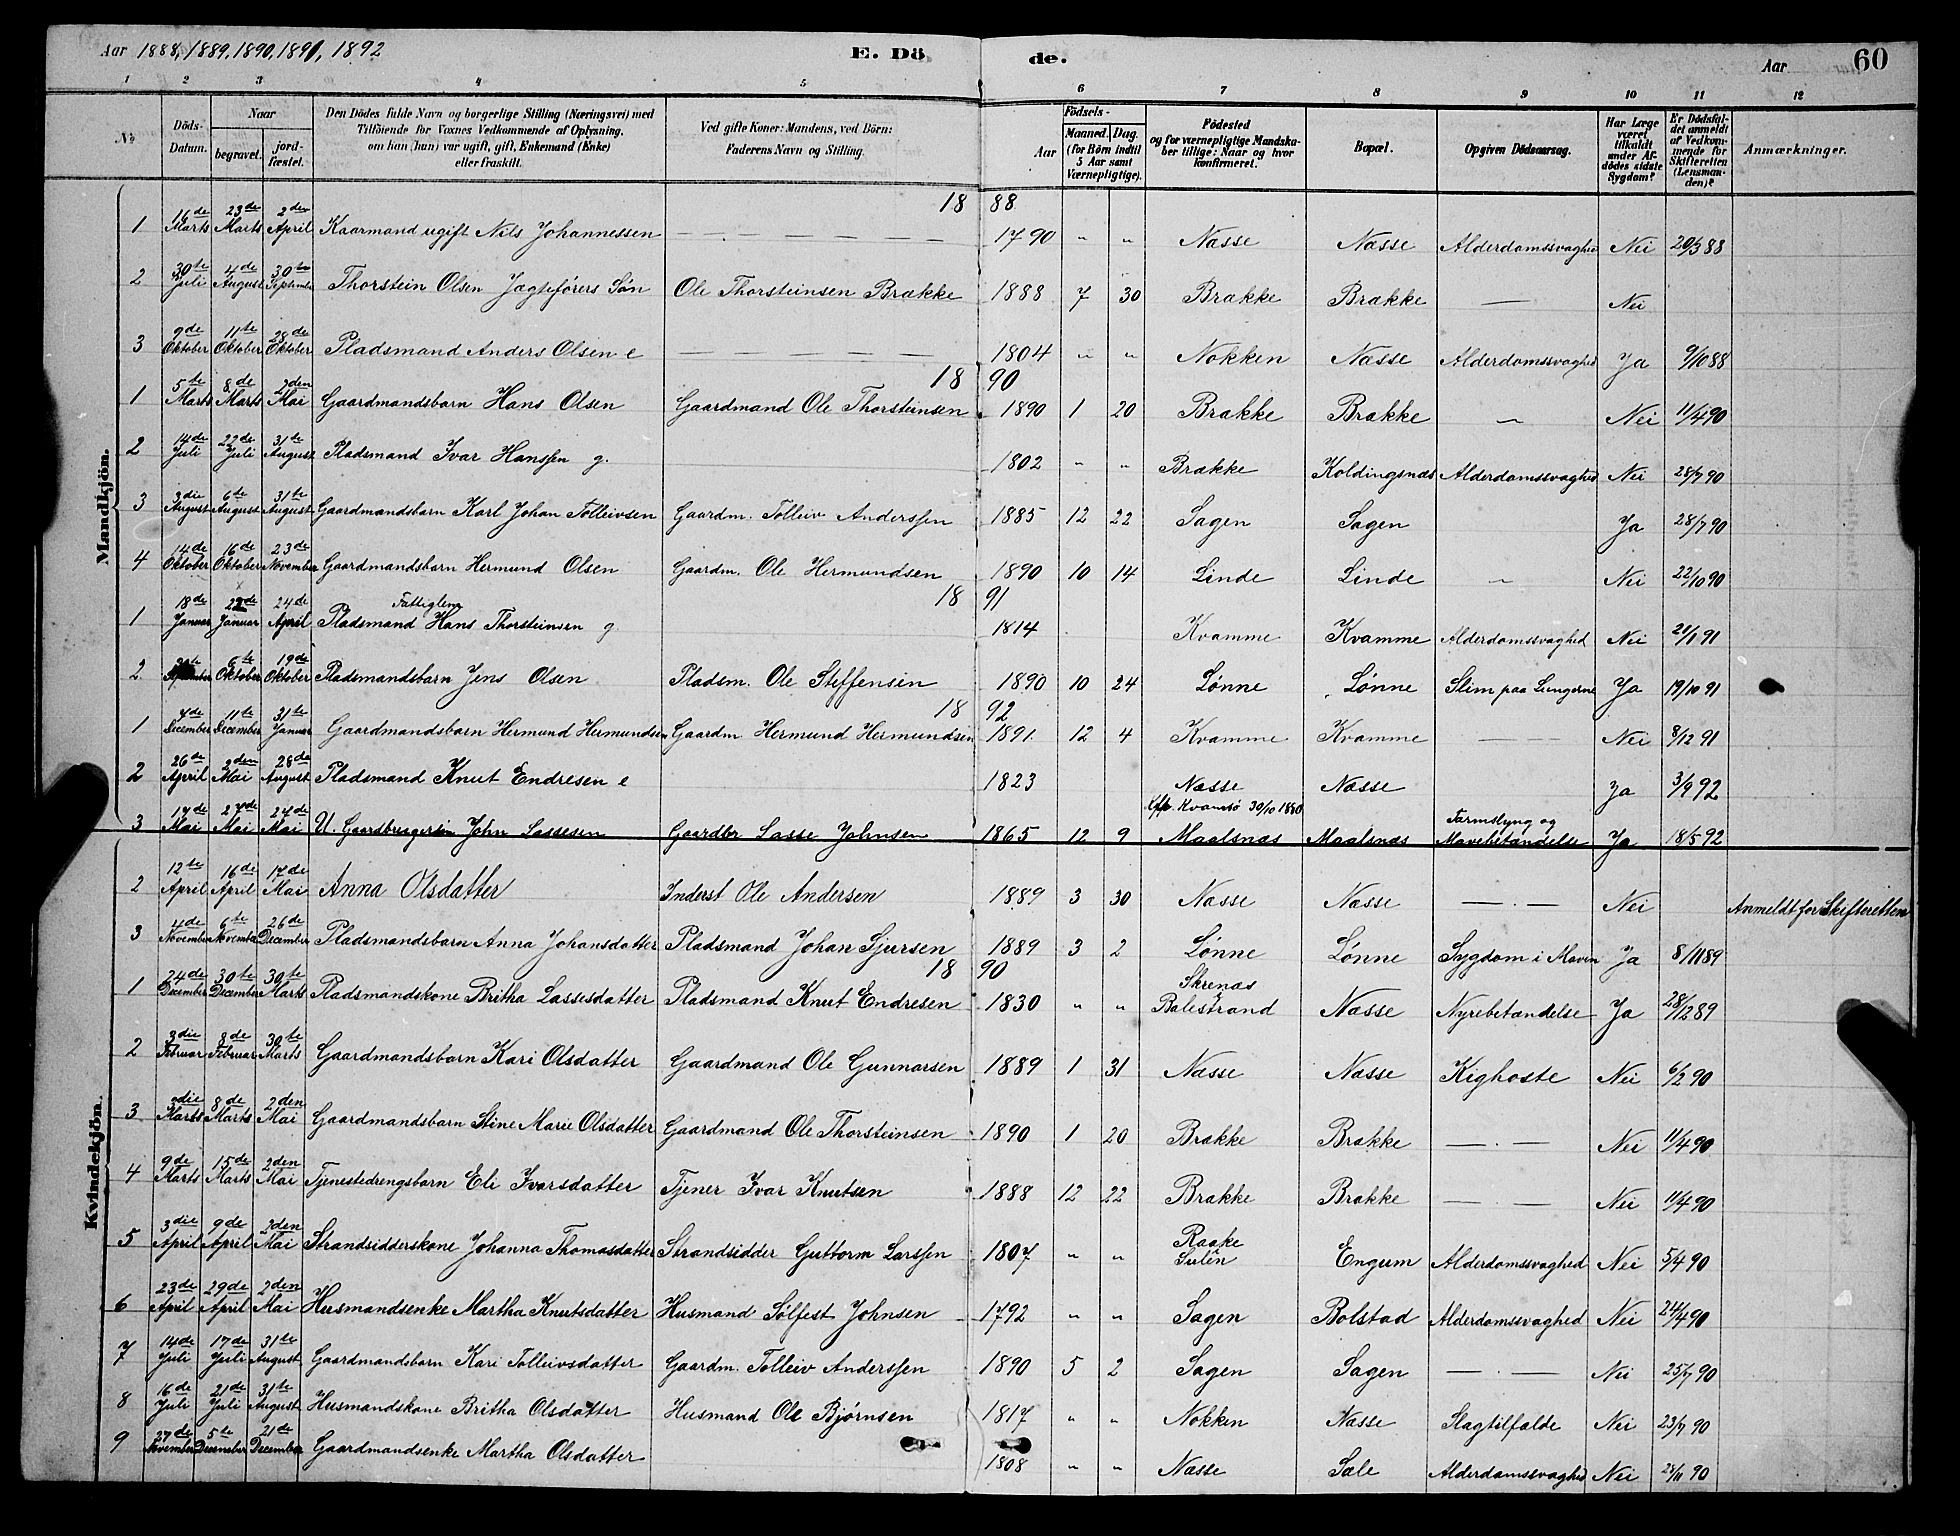 Aar 1888, 1889, 1890, 1891, 1892 E. Dö de. Aar 60
1 2 3 4 5 6 7 8 9 10 11 12
№ Döds-Datum. Naar begravet. jordfæstet. Den Dödes fulde Navn og borgerlige Stilling (Næringsvei) med Tilföiende for Voxnes Vedkommende af Oplysning, om han (hun) var ugift, gift, Enkemand (Enke) eller fraskilt. Ved gifte Koner: Mandens, ved Börn: Faderens Navn og Stilling. Aar Födsels- Maaned. Dag. (for Börn indtil 5 Aar samt Værnepligtige). Födested og for værnepligtige Mandskaber tillige: Naar og hvor konfirmeret. Bopæl. Opgiven Dödsaarsag. Har Læge været tilkaldt under Afdödes sidste Sygdom? Er Dödsfaldet anmeldt af Vedkommende for Skifteretten (Lensmanden)? Anmærkninger.
Mandkjön.
18 88
1 16de Marts 23de Marts 2den April Kaarmand ugift Nils Johannessen — — — 1790 " " Næsse Næsse Alderdomssvaghed Nei 20/3 88
2 30te Juli 4de August 30te September Thorstein Olsen Jagteførers Søn Ole Thorsteinsen Brække 1888 7 30 Brække Brække — Nei
3 9de Oktober 11te Oktober 28de Oktober Pladsmand Anders Olsen e — — — 1804 " " Nokken Næsse Alderdomssvaghed Ja 9/10 88
18 90
1 5te Marts 8de Marts 2den Mai Gaardmandsbarn Hans Olsen Gaardmand Ole Thorsteinsen 1890 1 20 Brække Brække — Nei 11/4 90
2 14de Juli 22de Juli 31te August Pladsmand Ivar Hanssen g. 1802 " " Brække Koldingsnæs Alderdomssvaghed Nei 28/7 90
3 3die August 6te August 31te August Gaardmandsbarn Karl Johan Tolleivsen Gaardm. Tolleiv Anderssen 1885 12 22 Sagen Sagen Ja 28/7 90
4 14de Oktober 16de Oktober 23de November Gaardmandsbarn Hermund Olsen Gaardm. Ole Hermundsen 1890 10 14 Linde Linde — Nei 22/10 90
18 91
1 18de Januar 22de Januar 24de April Fattiglem Pladsmand Hans Thorsteinsen g. 1814 Kvamme Kvamme Alderdomssvaghed Nei 21/1 91
2. September 6te Oktober 19de Oktober Pladsmandsbarn Jens Olsen Pladsm. Ole Steffensen 1890 10 24 Lønne Lønne Slim paa Lungerne Ja 19/10 91
18 92
1 4de December 11te December 31te Januar Gaardmandsbarn Hermund Hermundsen Gaardm Hermund Hermundsen 1891. 12 4 Kvamme Kvamme — Nei 8/12 91
2 26de April 2den Mai 28de August Pladsmand Knut Endresen e 1823 Næsse Næsse Ja 3/9 92
3 17de Mai 24de Mai 24de Mai U. Gaardbrugersøn John Lassesen Gaardbr Lasse Johnsen 1865 12 9 Kvamsø 30/10 1880 Maalsnæs Maalsnæs Tarmslyng og Mavebetændelse Ja 18/5 92
Kvindekjön.
2 12te April 16de April 17de Mai Anna Olsdatter Inderst Ole Andersen 1889 3 30 Næsse Næsse — Nei Anmeldt for Skifteretten
3 4de November 6te November 26de December Pladsmandsbarn Anna Johansdatter Pladsmand Johan Sjursen 1889 3 2 Lønne Lønne Sygdom i Maven Ja 8/11 89
18 90
1 24de December 30te December 30te Marts Pladsmandskone Britha Lassesdatter Pladsmand Knut Endresen 1830 " " Skrenæs Balestrand Næsse Nyrebetændelse Ja 28/12 89
2 3die Februar 8de Februar 30te Marts Gaardmandsbarn Kari Olsdatter Gaardmand Ole Gunnarsen 1889 1 31 Næsse Næsse Kighoste Nei 6/2 90
3 3die Marts 8de Marts 2den Mai Gaardmandsbarn Stine Marie Olsdatter Gaardmand Ole Thorsteinsen 1890 1 20 Brække Brække — Nei 11/4 90
4 9de Marts 15de Marts 2den Mai Tjenestedrengsbarn Eli Ivarsdatter Tjener Ivar Knutsen 1888 12 22 Brække Brække — Nei 11/4 90
5 3die April 9de April 2den Mai Strandsidderskone Johanna Thomasdatter Strandsidder Guttorm Larssen 1807 " " Raake Sulen Engum Alderdomssvaghed Nei 5/4 90
6 23de April 29de April 2den Mai Husmandsenke Martha Knutsdatter Husmand Sølfest Johnsen 1792 " " Sagen Bolstad Alderdomssvaghed Nei 24/4 90
7 14de Juli 17de Juli 31te August Gaardmandsbarn Kari Tolleivsdatter Gaardm. Tolleiv Anderssen 1890 5 2 Sagen Sagen — Nei 25/7 90
8 16de Juli 21de Juli 31te August Husmandskone Britha Olsdatter Husmand Ole Bjørnsen 1817 " " Nokken Næsse Slagtilfælde Nei 23/7 90
9 27de November 5te December 21de December Gaardmandsenke Martha Olsdatter 1808 " " Næsse Sæle Alderdomssvaghed Nei 28/11 90